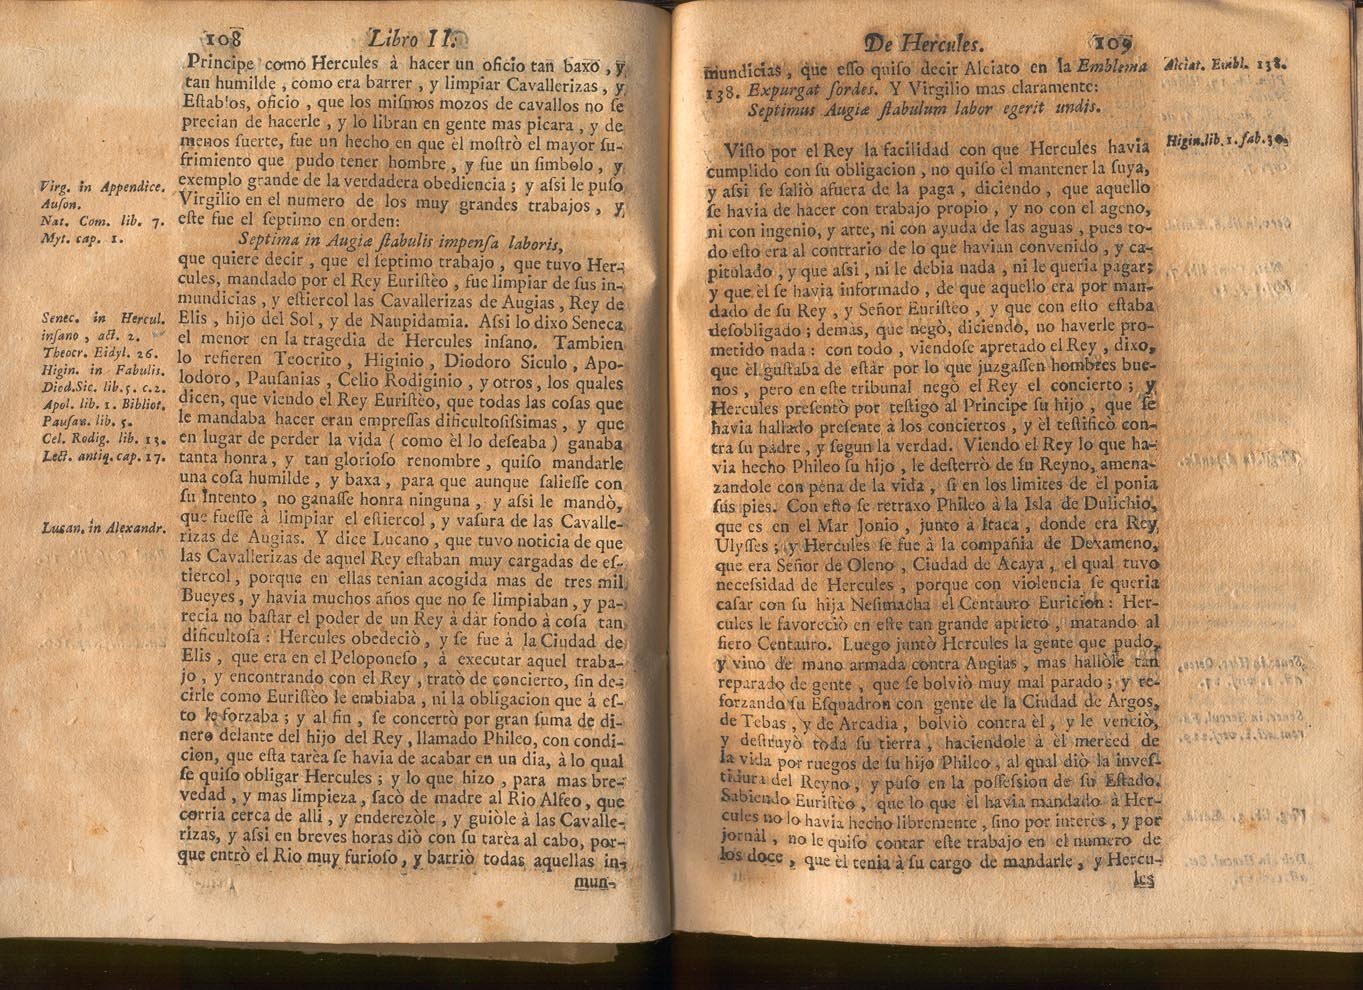 108 Libro II.
Principe como Hercules à hacer un oficio tan baxo, y
tan humilde, como era barrer, y limpiar Cavallerizas, y
Establos, oficio, que los mismos mozos de cavallos no se
precian de hacerle, y lo libran en gente mas picara, y de
menos suerte, fue un hecho en que èl mostrò el mayor su-
frimiento que pudo tener hombre, y fue un simbolo, y
exemplo grande de la verdadera obediencia; y assi le puso
Virgilio en el numero de los muy grandes trabajos, y
este fue el septimo en orden:
Septima in Augiæ stabulis impensa laboris,
que quiere decir, que el septimo trabajo, que tuvo Her-
cules, mandado por el Rey Euristèo, fue limpiar de sus in-
mundicias, y estiercol las Cavallerizas de Augias, Rey de
Elis, hijo del Sol, y de Naupidamia. Assi lo dixo Seneca
el menor en la tragedia de Hercules insano. Tambien
lo refieren Teocrito, Higinio, Diodoro Siculo, Apo-
lodoro, Pausanias, Celio Rodiginio, y otros, los quales
dicen, que viendo el Rey Euristèo, que todas las cosas que
le mandaba hacer eran empressas dificultosissimas, y que
en lugar de perder la vida (como èl lo deseaba) ganaba
tanta honra, y tan glorioso renombre, quiso mandarle
una cosa humilde, y baxa, para que aunque saliesse con
su intento, no ganasse honra ninguna, y assi le mandò,
que fuesse à limpiar el estiercol, y vasura de las Cavalle-
rizas de Augias. Y dice Lucano, que tuvo noticia de que
las Cavallerizas de aquel Rey estaban muy cargadas de es-
tiercol, porque en ellas tenian acogida mas de tres mil
Bueyes, y havia muchos años que no se limpiaban, y pa-
recia no bastar el poder de un Rey à dàr fondo à cosa tan
dificultosa: Hercules obedeciò, y se fue à la Ciudad de
Elis, que era en el Peloponeso, à executar aquel traba-
jo, y encontrando con el Rey, tratò de concierto, sin de-
cirle como Euristèo le embiaba, ni la obligacion que à es-
to le forzaba; y al fin, se concertò por gran suma de di-
nero delante del hijo del Rey, llamado Phileo, con condi-
cion, que esta tarèa se havia de acabar en un dia, à lo qual
se quiso obligar Hercules; y lo que hizo, para mas bre-
vedad, y mas limpieza, sacò de madre al Rio Alfeo, que
corria cerca de alli, y enderezòle, y guiòle à las Cavalle-
rizas, y assi en breves horas diò con su tarèa al cabo, por-
que entrò el Rio muy furioso, y barriò todas aquellas in-
mun-
Virg. in Appendice.
Auson.
Nat. Com. lib. 7.
Myt. cap. 1.
Senec. in Hercul.
insano, act. 2.
Theocr. Eidyl. 26.
Higin. in Fabulis.
Diod.Sic. lib. 5. c.2.
Apol. lib. 1. Bibliot.
Pausan. lib. 5.
Cel. Rodig. lib. 13.
Lect. antiq. cap. 17.
Lucan. in Alexandr.
De Hercules. 109
mundicias, que esso quiso decir Alciato en la Emblema
138. Expurgat sordes. Y Virgilio mas claramente:
Septimus Augiæ stabulum labor egerit undis.
Visto por el Rey la facilidad con que Hercules havia
cumplido con su obligacion, no quiso èl mantener la suya,
y assi se saliò afuera de la paga, diciendo, que aquello
se havia de hacer con trabajo propio, y no con el ageno,
ni con ingenio, y arte, ni con ayuda de las aguas, pues to-
do esto era al contrario de lo que havian convenido, y ca-
pitulado, y que assi, ni le debia nada, ni le queria pagar;
y que èl se havia informado, de que aquello era por man-
dado de su Rey, y Señor Euristèo, y que con esto estaba
desobligado; demàs, que negò, diciendo, no haverle pro-
metido nada: con todo, viendose apretado el Rey, dixo,
que èl gustaba de estàr por lo que juzgassen hombres bue-
nos, pero en este tribunal negò el Rey el concierto; y
Hercules presentò por testigo al Principe su hijo, que se
havia hallado presente à los conciertos, y èl testificò con-
tra su padre, y segun la verdad. Viendo el Rey lo que ha-
via hecho Phileo su hijo, le desterrò de su Reyno, amena-
zandole con pena de la vida, si en los limites de èl ponia
sus pies. Con esto se retraxo Phileo à la Isla de Dulichio,
que es en el Mar Jonio, junto à Itaca, donde era Rey
Ulysses; y Hercules se fue à la compañia de Dexameno,
que era Señor de Oleno, Ciudad de Acaya, el qual tuvo
necessidad de Hercules, porque con violencia se queria
casar con su hija Nesimacha el Centauro Euricion: Her-
cules le favoreciò en este tan grande aprieto, matando al
fiero Centauro. Luego juntò Hercules la gente que pudo,
y vino de mano armada contra Augias, mas hallòle tan
reparado de gente, que se bolviò muy mal parado; y re-
forzando su Esquadron con gente de la Ciudad de Argos,
de Tebas, y de Arcadia, bolviò contra èl, y le venciò,
y destruyò toda su tierra, haciendole à èl merced de
la vida por ruegos de su hijo Phileo, al qual diò la inves-
tidura del Reyno, y puso en la possession de su Estado.
Sabiendo Euristèo, que lo que èl havia mandado à Her-
cules no lo havia hecho libremente, sino por interès, y por
jornàl, no le quiso contar este trabajo en el numero de
los doce, que èl tenia à su cargo de mandarle, y Hercu-
les
Alciat. Embl. 138.
Higin. lib. 1. fab. 30.